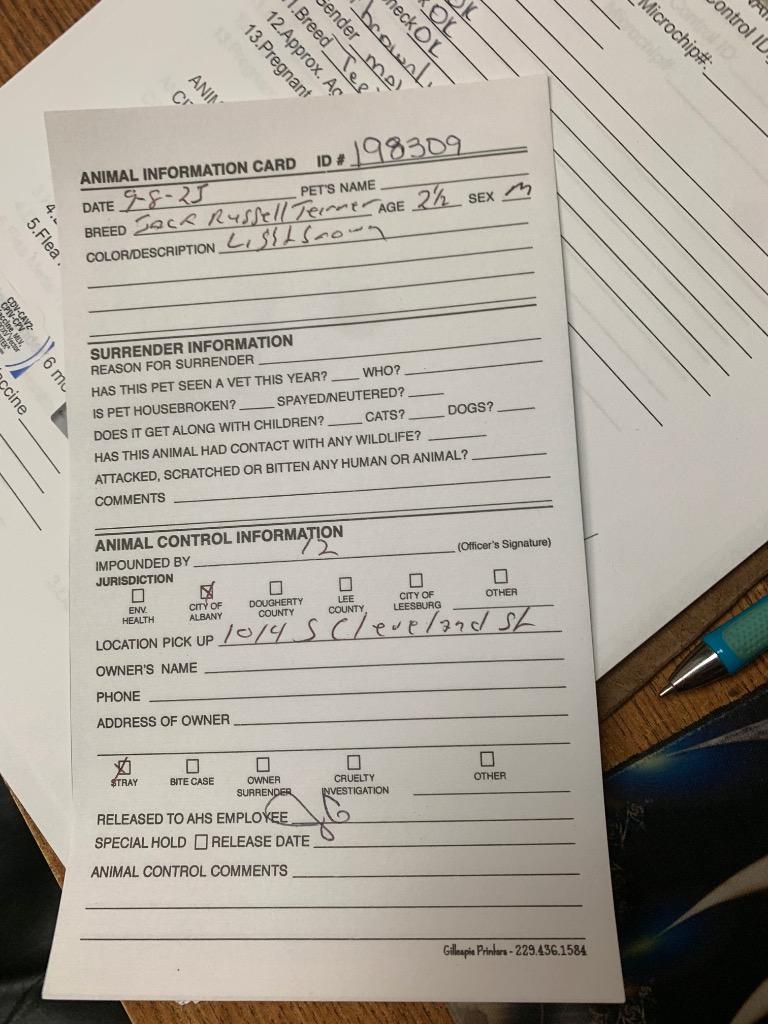 ender mal
11.Breed Tee
12.Approx. Ag
13.Pregnant
ANIM
Microchip#:
ontrol ID
5.Flea
CDV-CAV2-
CPIV-CPV
6 mo
ccine
ANIMAL INFORMATION CARD ID # 198309
DATE 9-8-25 PET'S NAME
BREED Jack Russell Terrier AGE 2½ SEX M
COLOR/DESCRIPTION Light Brown
SURRENDER INFORMATION
REASON FOR SURRENDER
HAS THIS PET SEEN A VET THIS YEAR? WHO?
IS PET HOUSEBROKEN? SPAYED/NEUTERED?
DOES IT GET ALONG WITH CHILDREN? CATS? DOGS?
HAS THIS ANIMAL HAD CONTACT WITH ANY WILDLIFE?
ATTACKED, SCRATCHED OR BITTEN ANY HUMAN OR ANIMAL?
COMMENTS
ANIMAL CONTROL INFORMATION
IMPOUNDED BY 12 (Officer's Signature)
JURISDICTION
ENV. HEALTH
CITY OF ALBANY
DOUGHERTY COUNTY
LEE COUNTY
CITY OF LEESBURG
OTHER
LOCATION PICK UP 1014 S Cleveland St
OWNER'S NAME
PHONE
ADDRESS OF OWNER
STRAY
BITE CASE
OWNER SURRENDER
CRUELTY INVESTIGATION
OTHER
RELEASED TO AHS EMPLOYEE
SPECIAL HOLD RELEASE DATE
ANIMAL CONTROL COMMENTS
Gillespie Printers - 229.436.1584